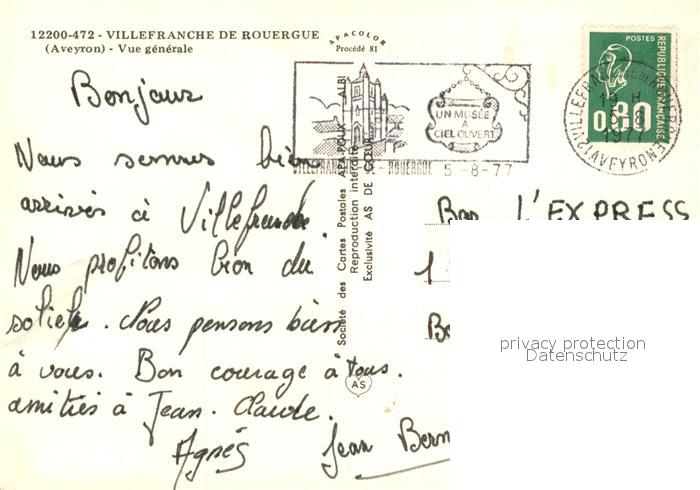 12200-472 - VILLEFRANCHE DE ROUERGUE
(Aveyron) - Vue générale
APACOLOR
Procédé 81
Bonjour
Nous sommes bien
arrivés à Villefranche.
Nous profitons bien du
soleil. Nous pensons bien
à vous. Bon courage à tous.
amitiés à Jean-Claude.
Agnès Jean Bern
Société des Cartes Postales APA-POUX ALBI
Reproduction interdite
Exclusivité AS DE CŒUR
AS
UN MUSÉE
A
CIEL OUVERT
VILLEFRANCHE DE ROUERGUE 5-8-77
POSTES
REPUBLIQUE FRANÇAISE
0,80
12 VILLEFRANCHE DE ROUERGUE
19 H
5-8
1977
AVEYRON
Bar L'EXPRESS
1
privacy protection
Datenschutz